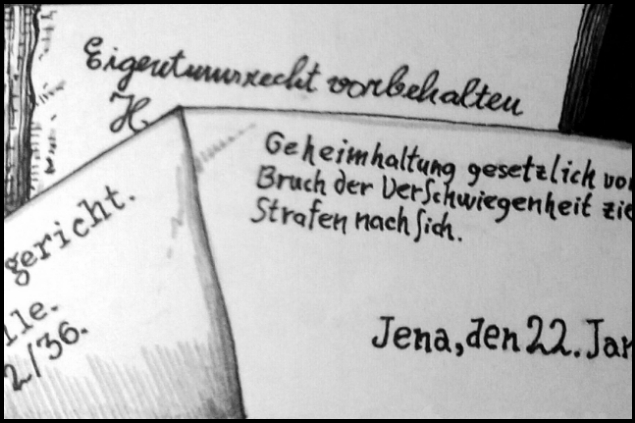 Eigentumsrecht vorbehalten
H
Geheimhaltung gesetzlich vor
Bruch der Verschwiegenheit zie
Strafen nach sich.
gericht.
lle.
2/36.
Jena, den 22. Jan